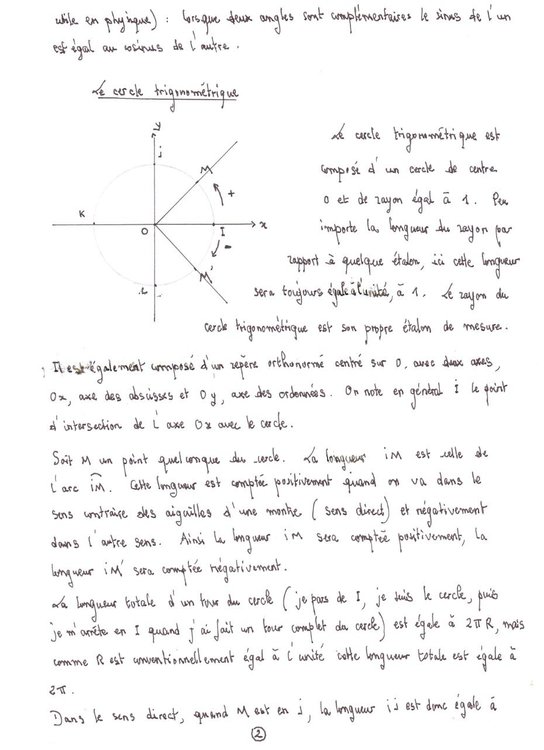 utile en physique) : lorsque deux angles sont complémentaires le sinus de l'un
est égal au cosinus de l'autre.
Le cercle trigonométrique
y
j
M
+
K
O
I
x
-
M'
L
Le cercle trigonométrique est
composé d'un cercle de centre
O et de rayon égal à 1. Peu
importe la longueur du rayon par
rapport à quelque étalon, ici cette longueur
sera toujours égale à l'unité, à 1. Le rayon du
cercle trigonométrique est son propre étalon de mesure.
Il est également composé d'un repère orthonormé centré sur O, avec deux axes,
Ox, axe des abscisses et Oy, axe des ordonnées. On note en général I le point
d'intersection de l'axe Ox avec le cercle.
Soit M un point quelconque du cercle. La longueur iM est celle de
l'arc iM. Cette longueur est comptée positivement quand on va dans le
sens contraire des aiguilles d'une montre (sens direct) et négativement
dans l'autre sens. Ainsi la longueur iM sera comptée positivement, la
longueur iM' sera comptée négativement.
La longueur totale d'un tour du cercle (je pars de I, je suis le cercle, puis
je m'arrête en I quand j'ai fait un tour complet du cercle) est égale à 2πR, mais
comme R est conventionnellement égal à l'unité cette longueur totale est égale à
2π.
Dans le sens direct, quand M est en j, la longueur ij est donc égale à
2